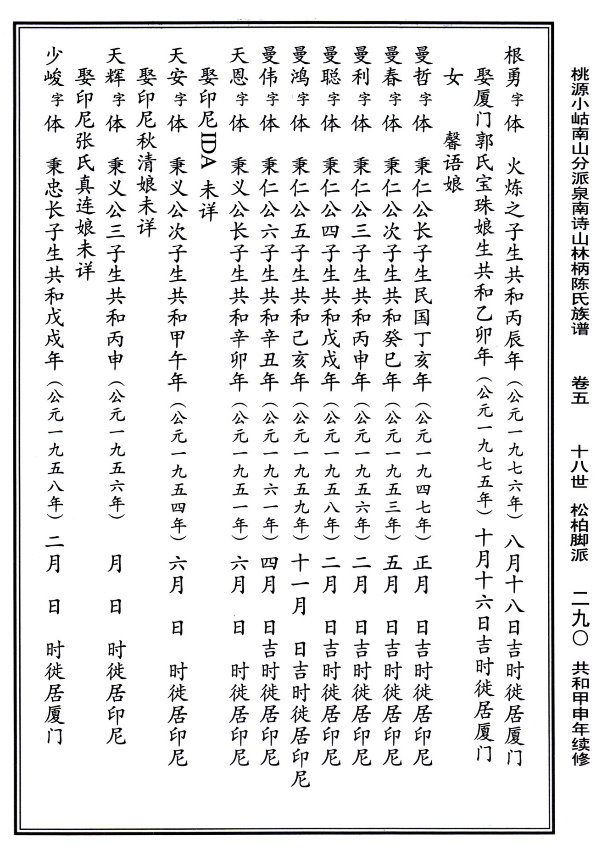 桃源小岵南山分派泉南诗山林柄陈氏族谱 卷五 十八世 松柏脚派 二九〇 共和甲申年续修
根勇字 体 火炼之子生共和丙辰年（公元一九七六年）八月十八日吉时徙居厦门
娶厦门郭氏宝珠娘生共和乙卯年（公元一九七五年）十月十六日吉时徙居厦门
女 馨语娘
曼哲字 体 秉仁公长子生民国丁亥年（公元一九四七年）正月 日吉时徙居印尼
曼春字 体 秉仁公次子生共和癸巳年（公元一九五三年）五月 日吉时徙居印尼
曼利字 体 秉仁公三子生共和丙申年（公元一九五六年）二月 日吉时徙居印尼
曼聪字 体 秉仁公四子生共和戊戌年（公元一九五八年）二月 日吉时徙居印尼
曼鸿字 体 秉仁公五子生共和己亥年（公元一九五九年）十一月 日吉时徙居印尼
曼伟字 体 秉仁公六子生共和辛丑年（公元一九六一年）四月 日吉时徙居印尼
天恩字 体 秉义公长子生共和辛卯年（公元一九五一年）六月 日 时徙居印尼
娶印尼IDA 未详
天安字 体 秉义公次子生共和甲午年（公元一九五四年）六月 日 时徙居印尼
娶印尼秋清娘未详
天辉字 体 秉义公三子生共和丙申（公元一九五六年） 月 日 时徙居印尼
娶印尼张氏真连娘未详
少峻字 体 秉忠长子生共和戊戌年（公元一九五八年）二月 日 时徙居厦门